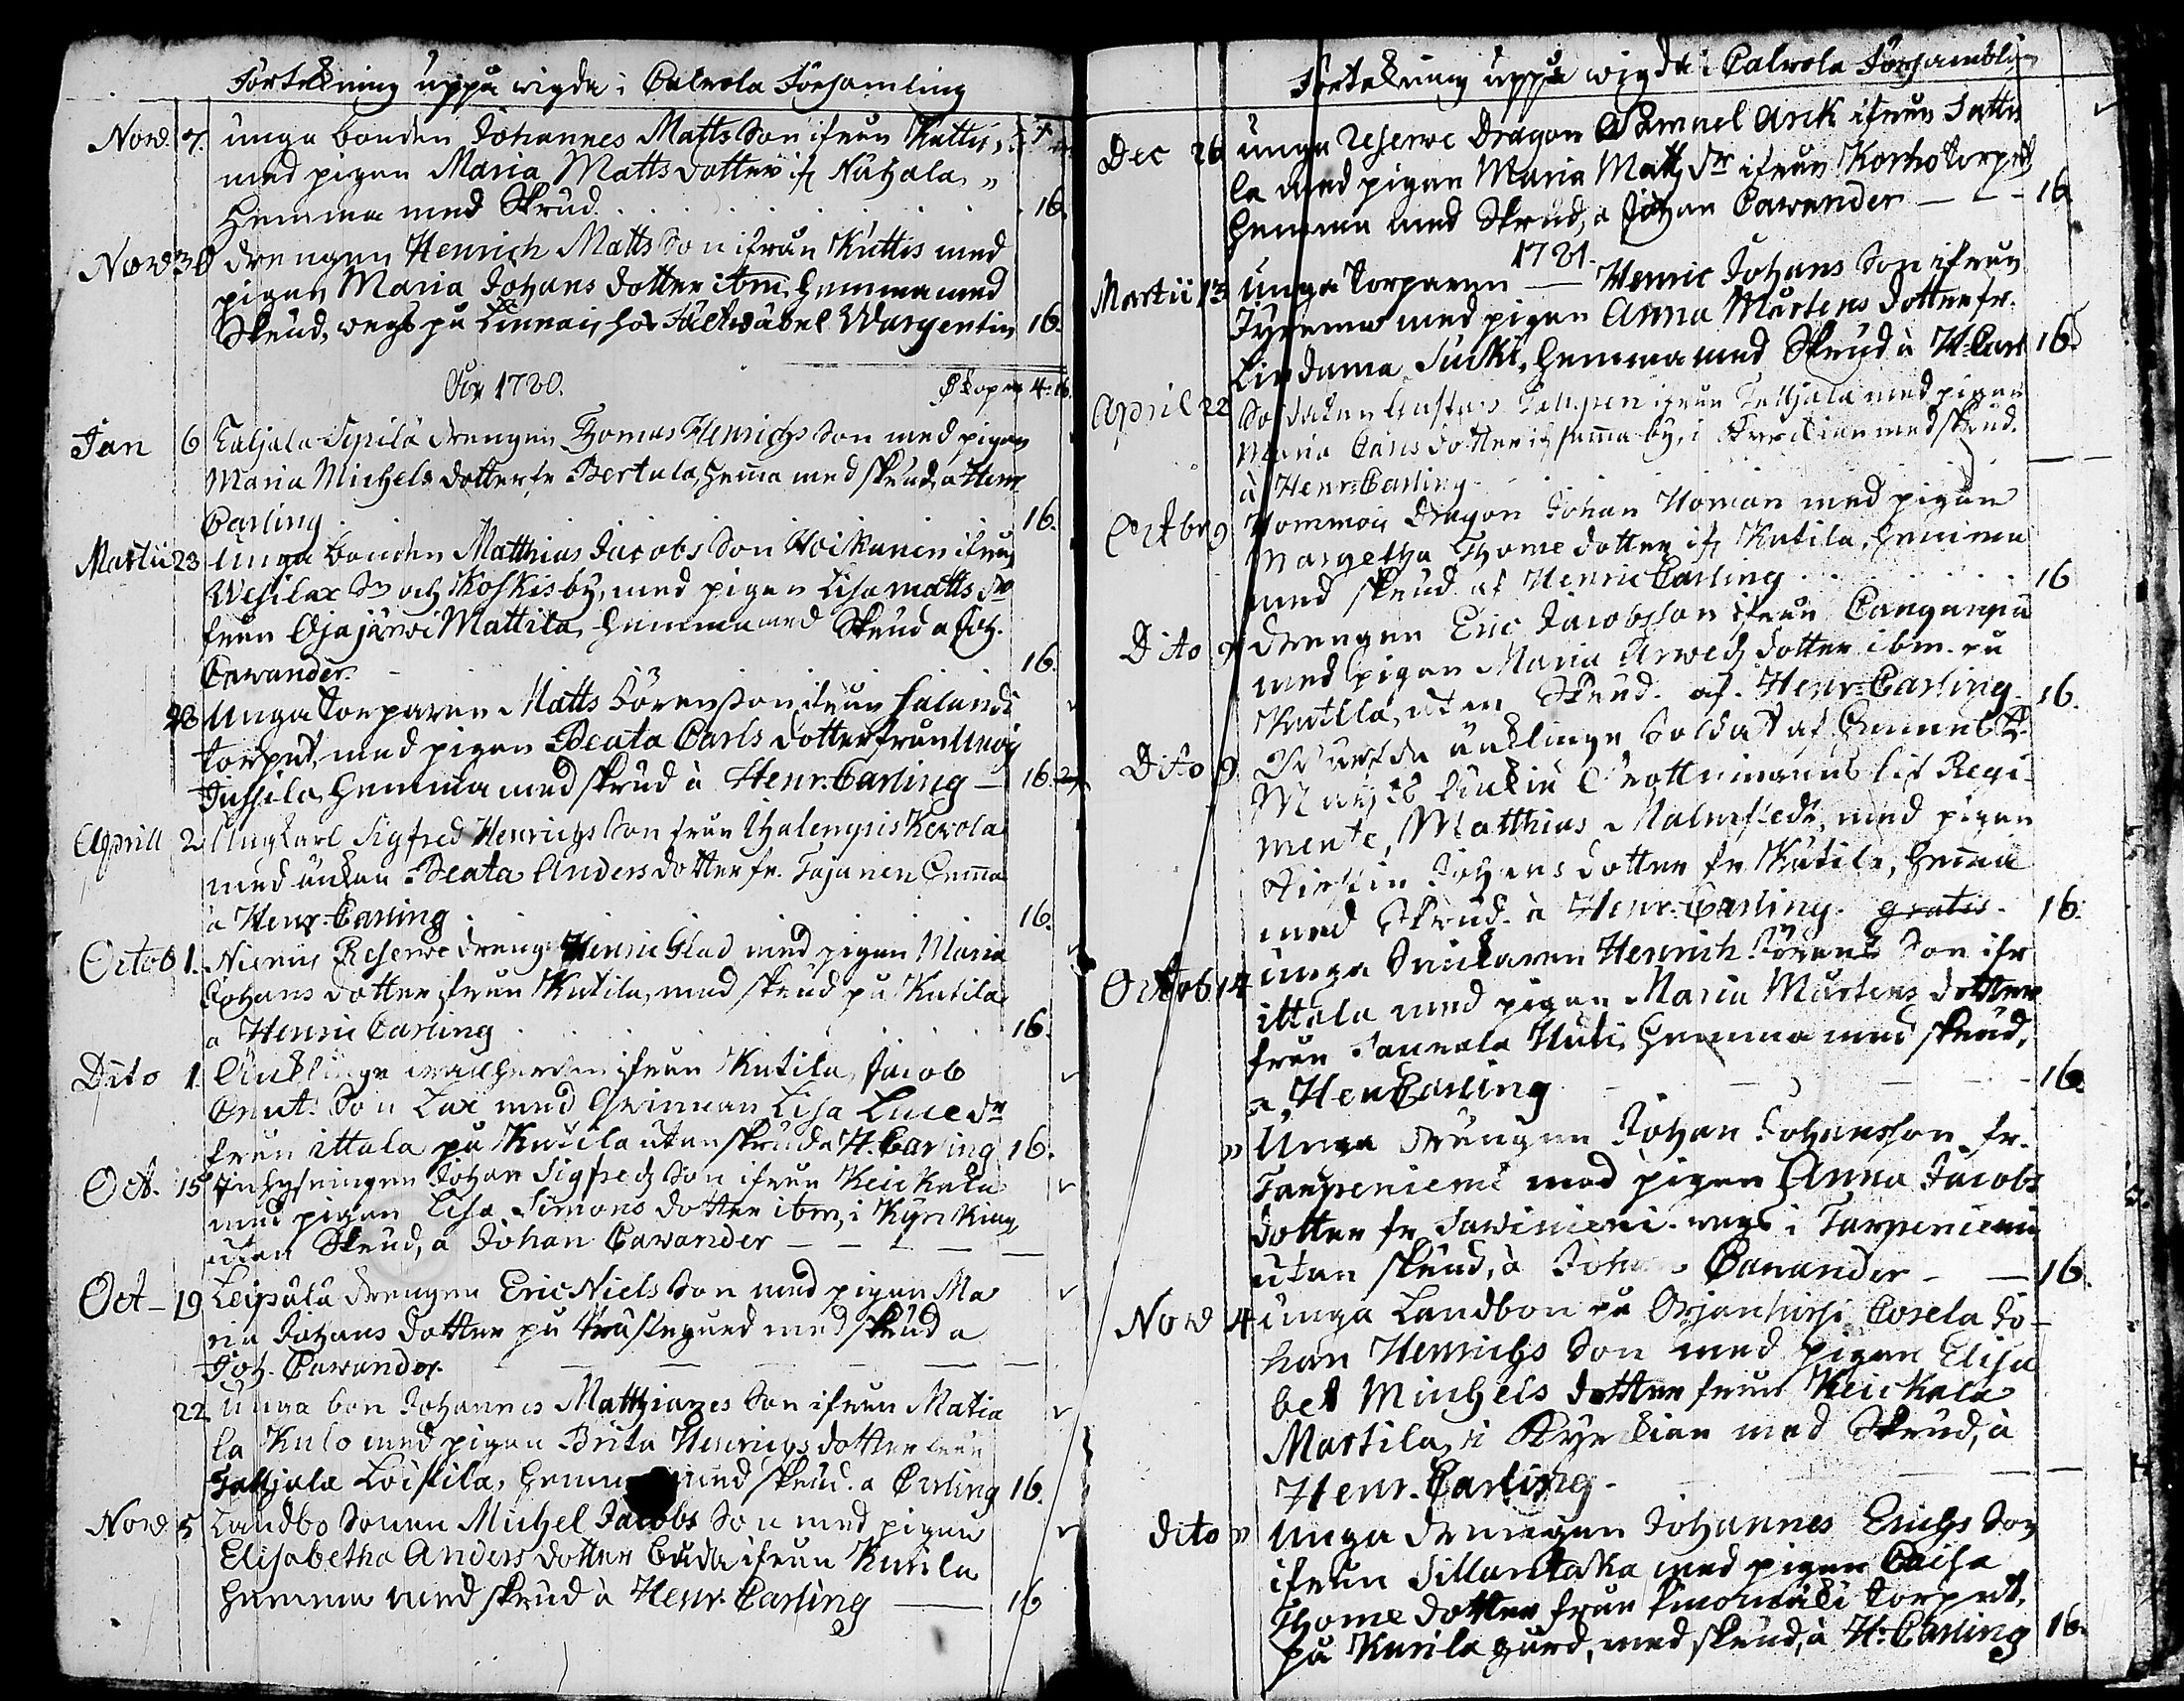 Förtekning uppå wigda i Calvola Församling
Nov. 7. unga bonden Johannes Matts Son ifrån Kuttis,
med pigan Maria Matts dotter if Nuhala,
hemma med Skrud. 16.
Nov. 30 drengen Henrich Matts Son ifrån Kuttis med
pigan Maria Johans dotter ibm, hemma med
Skrud, wegd på Linnais hos Fältwäbel Wargentin 16.
År 1780.
Jan 6 drengen Thomas Henrichs Son med pigan
Maria Michels dotter fr Bertula, hema med skrud, a Henr
Carling 16.
Martii 23 Unga bonden Matthias Jacobs Son Woikanen ifrån
Wesilax Sn och Koskis by, med pigan Lisa Matts dr
från Ojajärwi Mattila, hemma med Skrud a Joh.
Cawander. 16.
23 Unga torparen Matts Sörenson ifrån
torpet, med pigan Beata Carls dotter från
Jussila, hemma med skrud à Henr. Carling 16.
Aprill 2 Ung karl Sigfred Henrichs Son från
med änkan Beata Anders dotter fr. Tajanen hema
a Henr. Carling 16.
Octob 1. Niemis Reserve dreng Henric Glad med pigan Maria
Johans dotter från Kutila, med skrud på Kutila
a Henric Carling 16.
Dito 1 Änklinge ifrån Kutila, Jacob
Cnuts Son Lax med Qvinnan Lisa Luce dr
från ittala på Kutila utan skrud a H. Carling 16.
Oct. 15 Inhysningen Johan Sigfreds Son ifrån Keickala
med pigan Lisa Simons dotter ibm, i Kyrkian,
utan Skrud, a Johan Cawander
Oct 19 Leipälä drengen Eric Niels Son med pigan Ma
ria Johans dotter på Prästegård med skrud a
Joh. Cawander.
22 Unga bon Johannes Matthiaes Son ifrån Matia
la Kulo med pigan Brita Henrichs dotter från
Taljala Loistila, hemma med skrud. a Carling 16.
Nov. 5 Landbo Sonen Michel Jacobs Son med pigan
Elisabetha Anders dotter ifrån Kurila
hemma med skrud à Henr. Carling 16
Förtekning uppå wigda i Calvola Försambling
Dec 26 unga Reserve Dragon Samuel Ark ifrån Sattu
la med pigan Maria Matts dr ifrån Korho torpet,
hemma med Skrud, a Johan Cawander 16
1781.
Martii 13 unga torparen Henric Johans Son ifrån
med pigan Anna Mårtens dotter fr.
Lindama Suiki, hemma med Skrud à H. Carl 16.
April 22 Soldaten Gustavs ifrån Taljala med pigan
Maria Carls dotter if samma by, i Kyrckian med skrud.
à Henr. Carling
Octbr 9 Dragon Johan Homan med pigan
Margetha Thome dotter if Kutila, hemma
med skrud af Henric Carling 16
Dito 9 drengen Eric Jacobsson ifrån Canganpä
med pigan Maria Arweds dotter ibm. på
Kutila, utan Skrud af Henr. Carling. 16.
Dito 9 änklinge Soldat af
lif Regi-
mente, Matthias Malmstedt, med pigan
Kirstin Johans dotter fr Kutila, hema
med Skrud. à Henr. Carling. gratis. 16.
Octob 14 unga Snickaren Henrich Sörens Son ifr
ittala med pigan Maria Mårtens dotter
från Sauvala Huti, hemma med skrud,
a, Hen Carling 16.
" Unga drengen Johan Johansson fr.
Tarpeniemi med pigan Anna Jacobs
dotter fr Sawiniemi. wegd i Tarpeniemi
utan skrud, à Johan Cawander 16.
Nov 4 unga Landbon på Orjanhirsi Corela Jo-
han Henrichs Son med pigan Elisa
bet Michels dotter från Keickala
Martila, i Kyrckian med Skrud, à
Henr. Carling.
dito " Unga drengen Johannes Erichs Son
ifrån Sillantaka med pigan Caisa
Thome dotter från torpet,
på Kurila gård, med skrud, à H. Carling 16.